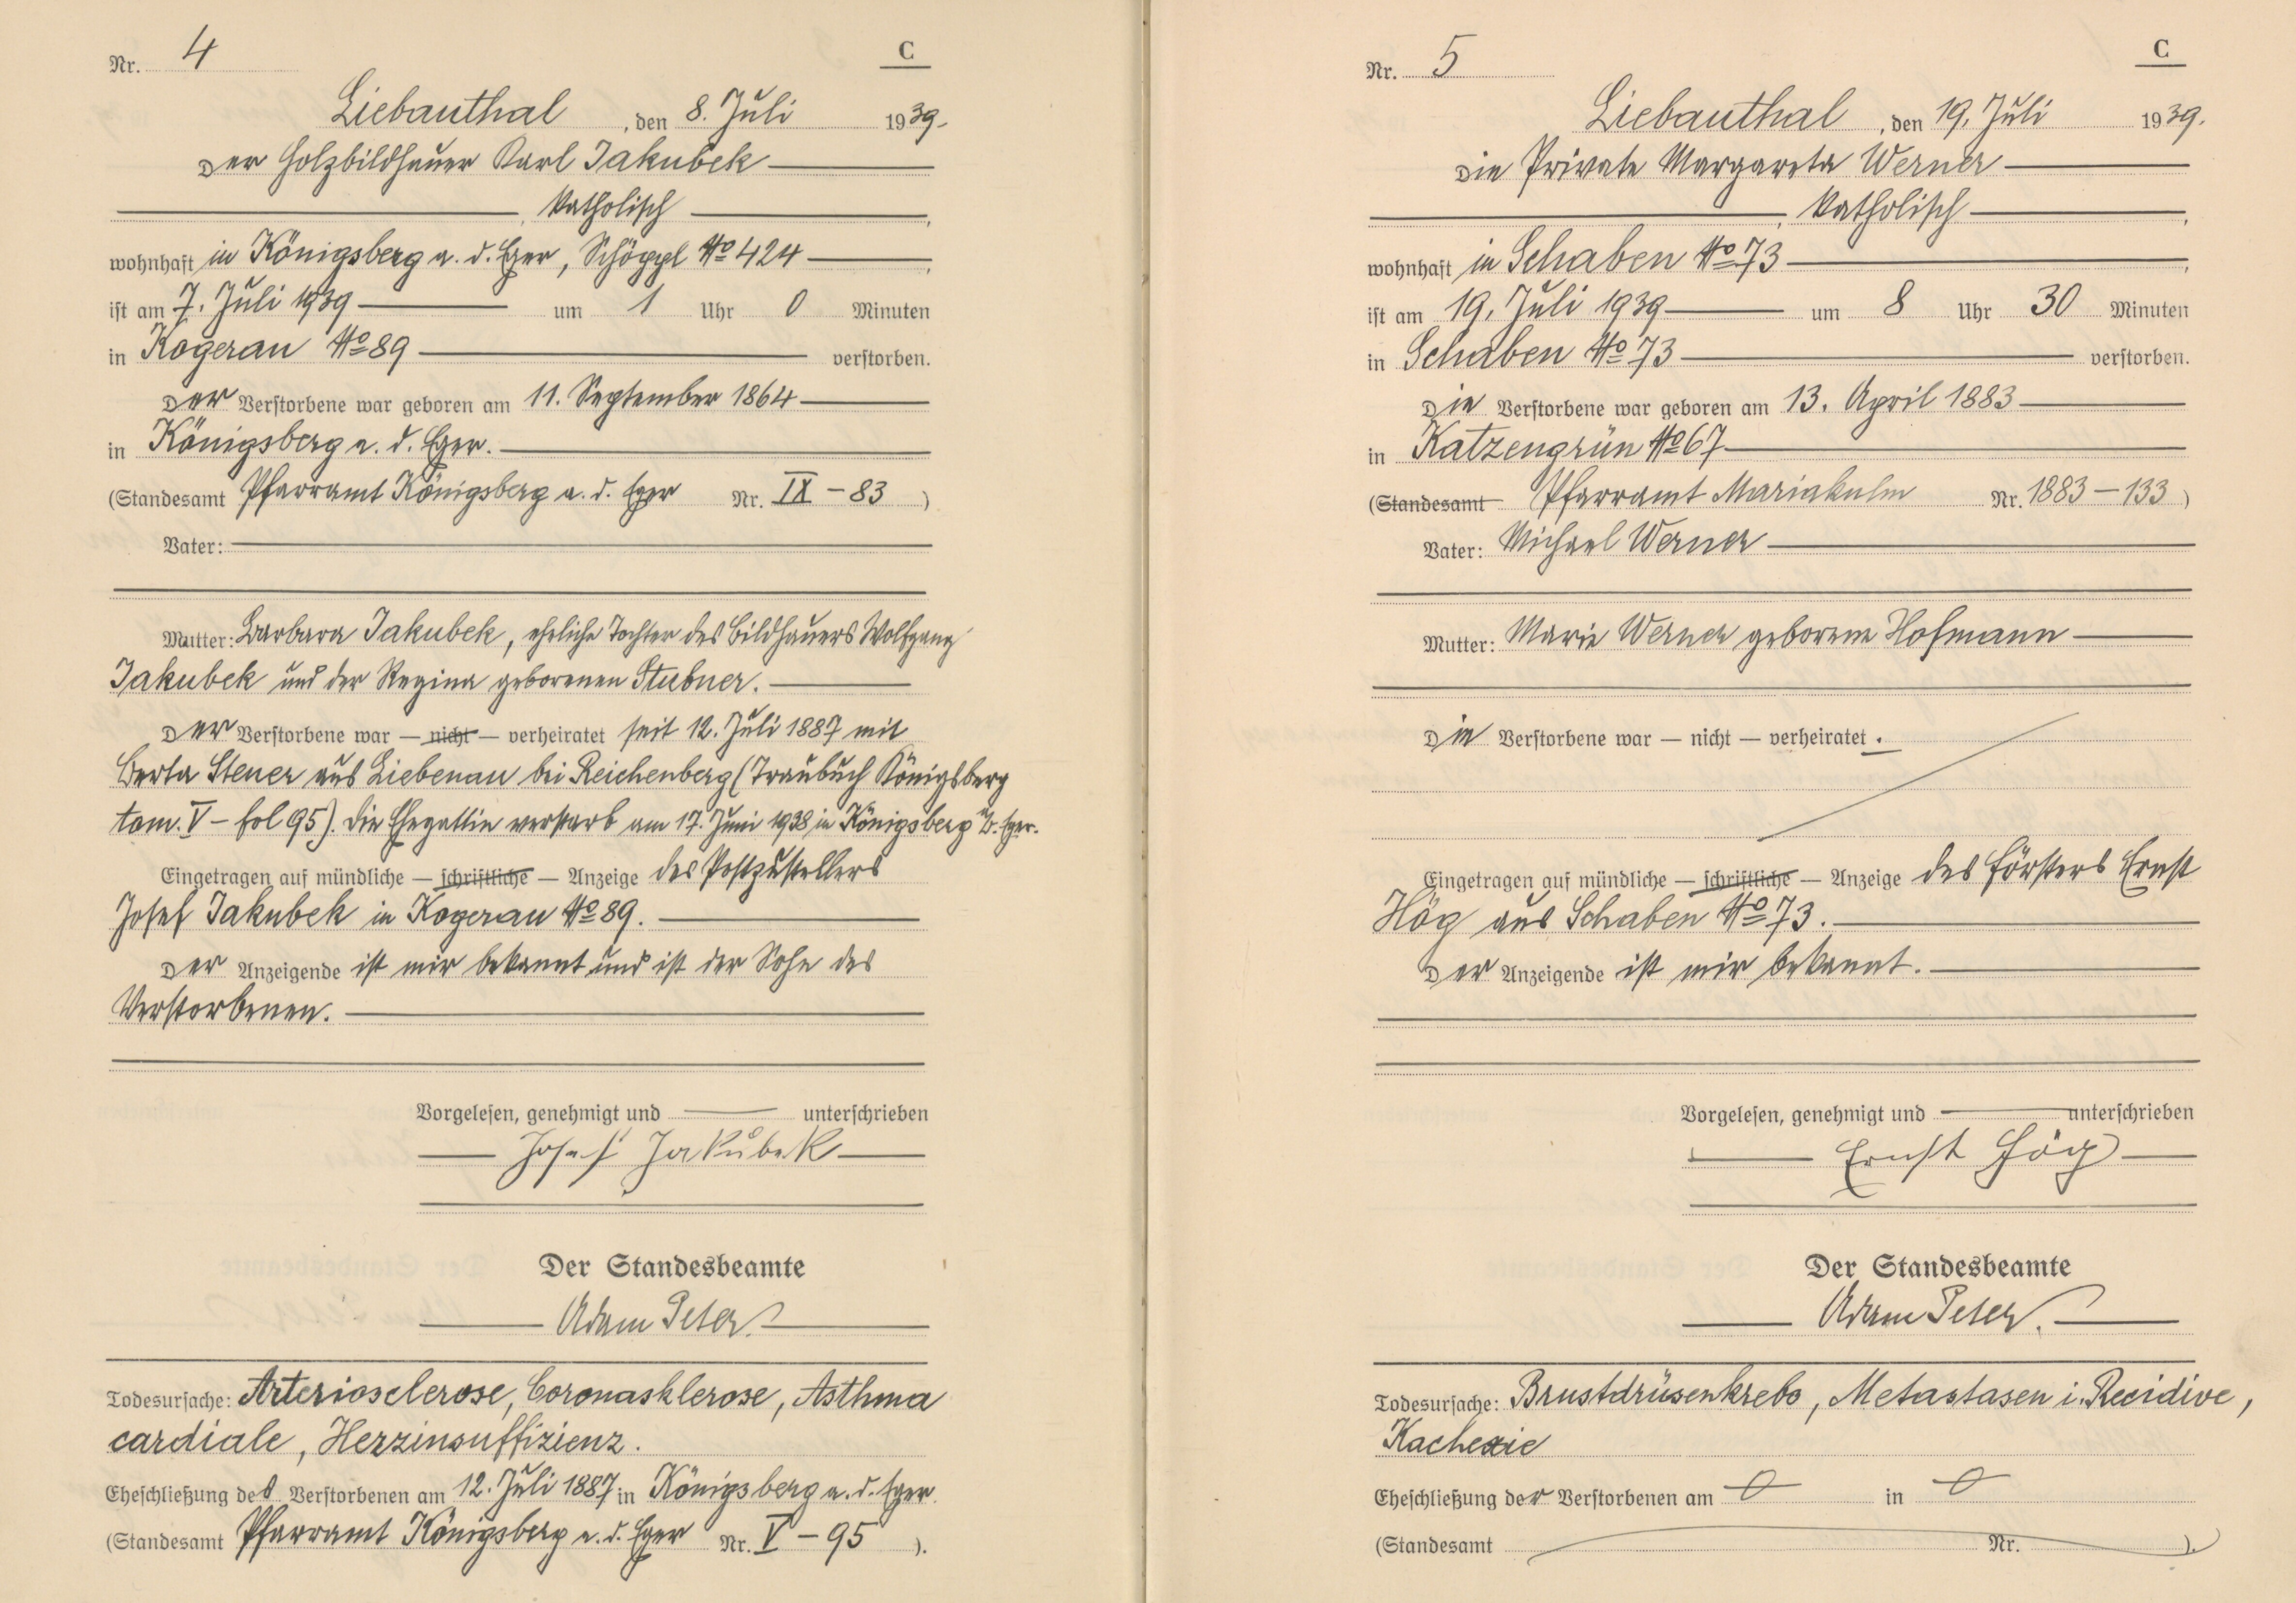 Nr. 4
C
Liebauthal, den 8. Juli 1939.
Der Holzbildhauer Karl Jakubek
, katholisch,
wohnhaft in Königsberg a. d. Eger, Schöppl No 424,
ist am 7. Juli 1939 um 1 Uhr 0 Minuten
in Kogerau No 89 verstorben.
Der Verstorbene war geboren am 11. September 1864
in Königsberg a. d. Eger.
(Standesamt Pfarramt Königsberg a. d. Eger Nr. IX – 83)
Vater:
Mutter: Barbara Jakubek, eheliche Tochter des Bildhauers Wolfgang
Jakubek und der Regina geborenen Stubner.
Der Verstorbene war — nicht — verheiratet seit 12. Juli 1887 mit
Berta Stener aus Liebenau bei Reichenberg (Traubuch Königsberg
tom. V – fol 95). Die Ehegattin verstarb am 17. Juni 1938 in Königsberg a. d. Eger.
Eingetragen auf mündliche — schriftliche — Anzeige des Postzustellers
Josef Jakubek in Kogerau No 89.
Der Anzeigende ist mir bekannt und ist der Sohn des
Verstorbenen.
Vorgelesen, genehmigt und unterschrieben
Josef Jakubek
Der Standesbeamte
Adam Peter.
Todesursache: Arteriosclerose, Coronasklerose, Asthma
cardiale, Herzinsuffizienz.
Eheschließung des Verstorbenen am 12. Juli 1887 in Königsberg a. d. Eger
(Standesamt Pfarramt Königsberg a. d. Eger Nr. V – 95).
Nr. 5
C
Liebauthal, den 19. Juli 1939.
Die Private Margareta Werner
, katholisch,
wohnhaft in Schaben No 73,
ist am 19. Juli 1939 um 8 Uhr 30 Minuten
in Schaben No 73 verstorben.
Die Verstorbene war geboren am 13. April 1883
in Katzengrün No 67
(Standesamt Pfarramt Mariakulm Nr. 1883 – 133)
Vater: Michael Werner
Mutter: Marie Werner geborene Hofmann
Die Verstorbene war — nicht — verheiratet.
Eingetragen auf mündliche — schriftliche — Anzeige des Försters Ernst
Hög aus Schaben No 73.
Der Anzeigende ist mir bekannt.
Vorgelesen, genehmigt und unterschrieben
Ernst Hög
Der Standesbeamte
Adam Peter.
Todesursache: Brustdrüsenkrebs, Metastasen i. Recidive,
Kachexie
Eheschließung der Verstorbenen am 0 in 0
(Standesamt Nr. ).